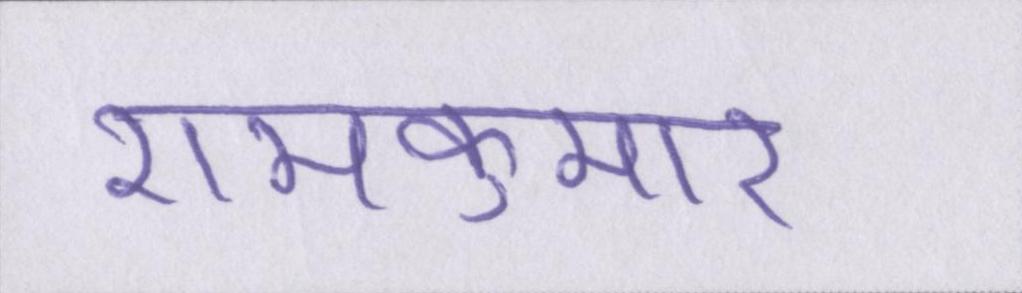 रामकुमार